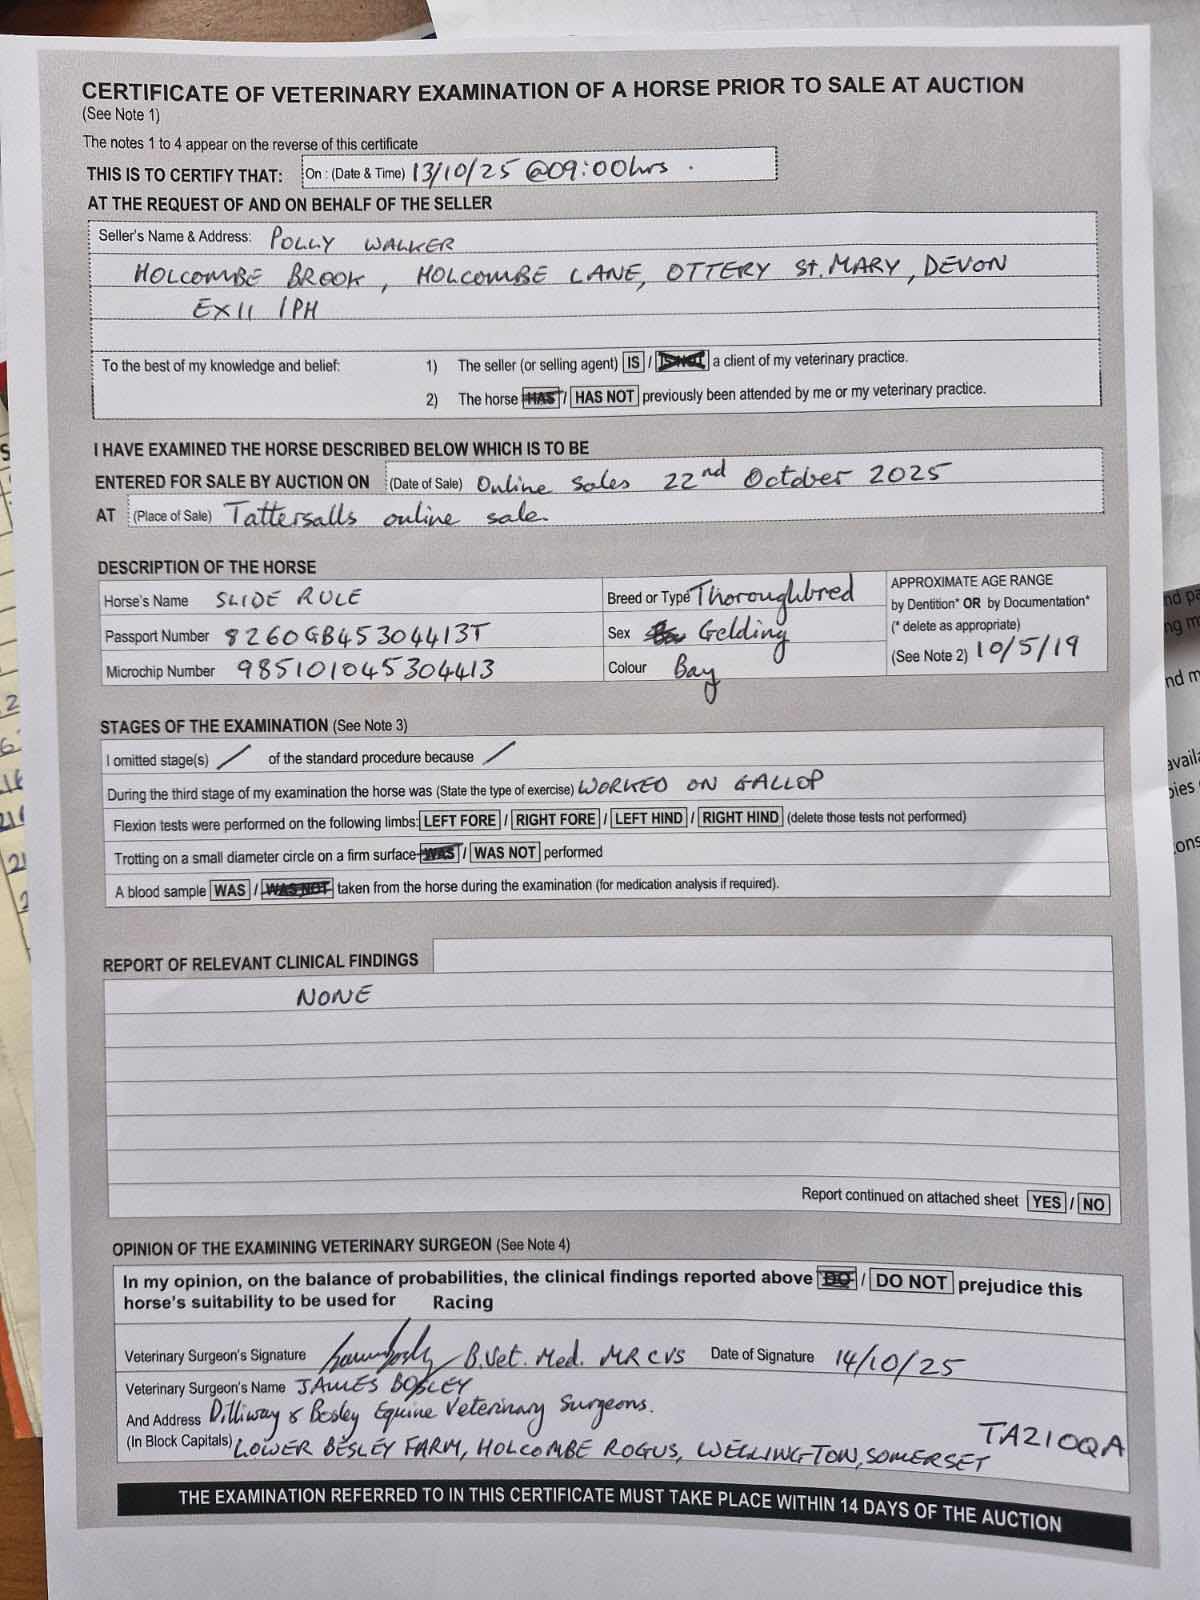 CERTIFICATE OF VETERINARY EXAMINATION OF A HORSE PRIOR TO SALE AT AUCTION
(See Note 1)
The notes 1 to 4 appear on the reverse of this certificate
THIS IS TO CERTIFY THAT: On : (Date & Time) 13/10/25 @09:00hrs .
AT THE REQUEST OF AND ON BEHALF OF THE SELLER
Seller's Name & Address: POLLY WALKER
HOLCOMBE BROOK, HOLCOMBE LANE, OTTERY St. MARY, DEVON
EX11 1PH
To the best of my knowledge and belief: 1) The seller (or selling agent) IS / IS NOT a client of my veterinary practice.
2) The horse HAS / HAS NOT previously been attended by me or my veterinary practice.
I HAVE EXAMINED THE HORSE DESCRIBED BELOW WHICH IS TO BE
ENTERED FOR SALE BY AUCTION ON (Date of Sale) Online Sales 22nd October 2025
AT (Place of Sale) Tattersalls online sale.
DESCRIPTION OF THE HORSE
Horse's Name SLIDE RULE Breed or Type Thoroughbred
Passport Number 8260GB45304413T Sex Gelding
Microchip Number 985101045304413 Colour Bay
APPROXIMATE AGE RANGE
by Dentition* OR by Documentation*
(* delete as appropriate)
(See Note 2) 10/5/19
STAGES OF THE EXAMINATION (See Note 3)
I omitted stage(s) / of the standard procedure because /
During the third stage of my examination the horse was (State the type of exercise) WORKED ON GALLOP
Flexion tests were performed on the following limbs: LEFT FORE / RIGHT FORE / LEFT HIND / RIGHT HIND (delete those tests not performed)
Trotting on a small diameter circle on a firm surface WAS / WAS NOT performed
A blood sample WAS / WAS NOT taken from the horse during the examination (for medication analysis if required).
REPORT OF RELEVANT CLINICAL FINDINGS
NONE
Report continued on attached sheet YES / NO
OPINION OF THE EXAMINING VETERINARY SURGEON (See Note 4)
In my opinion, on the balance of probabilities, the clinical findings reported above DO / DO NOT prejudice this
horse's suitability to be used for Racing
Veterinary Surgeon's Signature B.Vet. Med. MRCVS Date of Signature 14/10/25
Veterinary Surgeon's Name JAMES BOSLEY
And Address Dilliway & Bosley Equine Veterinary Surgeons.
(In Block Capitals) LOWER BESLEY FARM, HOLCOMBE ROGUS, WELLINGTON, SOMERSET TA210QA
THE EXAMINATION REFERRED TO IN THIS CERTIFICATE MUST TAKE PLACE WITHIN 14 DAYS OF THE AUCTION